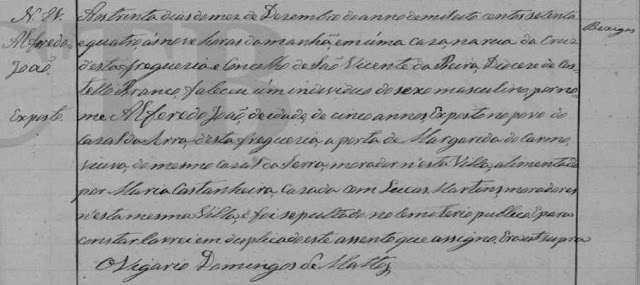 Aos trinta dias do mez de Dezembro do anno de mil oito centos setenta
e quatro, ás nove horas da manhã, em úma caza, na rua da Cruz
d'esta freguezia e Concelho de São Vicente da Beira, Dioceze de Cas-
tello Branco, faleceu úm individuo do sexo masculino, por no-
me Alfredo João, de idade de cinco annos, Exposto no povo do
Cazal da Serra, d'esta freguezia, a porta de Margarida do Carmo,
viuva, do mesmo cazal da Serra, morador n'esta Villa, alimentado
por Maria Castanheira, cazada com Lucas Martins, moradores
n'esta mesma Villa, e foi sepultado no Cemiterio publico. E para
constar lavrei em duplicado este assento que assigno. Era ut supra
O Vigario Domingos de Mattos
Alfredo
João
Exposto